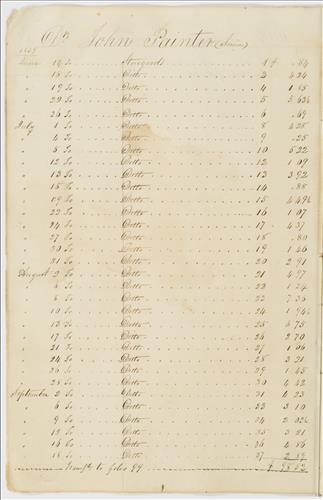 Dr John Painter (Senior)
June 14 To Storegoods 1 $ .84
" 16 To Ditto 3 4 24
" 19 To Ditto 4 1 65
" 22 To Ditto 5 5 63½
" 26 To Ditto 6 .69
July 1 To Ditto 8 4 25
" 4 To Ditto 9 .25
" 5 To Ditto 10 5 22
" 12 To Ditto 12 1 09
" 13 To Ditto 13 3 92
" 15 To Ditto 14 .88
" 19 To Ditto 15 4 49½
" 22 To Ditto 16 1 07
" 24 To Ditto 17 4 37
" 27 To Ditto 18 .80
" 30 To Ditto 19 1 46
" 31 To Ditto 20 2 91
August 2 To Ditto 21 4 97
" 6 To Ditto 22 1 24
" 8 To Ditto 23 7 36
" 10 To Ditto 24 1 94½
" 13 To Ditto 25 4 75
" 17 To Ditto 26 2 70
" 21 To Ditto 27 1 06
" 24 To Ditto 28 3 21
" 26 To Ditto 29 1 45
" 28 To Ditto 30 4 42
September 2 To Ditto 31 4 23
" 6 To Ditto 33 3 10
" 9 To Ditto 34 2 02½
" 12 To Ditto 35 3 21
" 16 To Ditto 36 4 86
" 18 To Ditto 37 2 89
to folio 99 $ 98 52